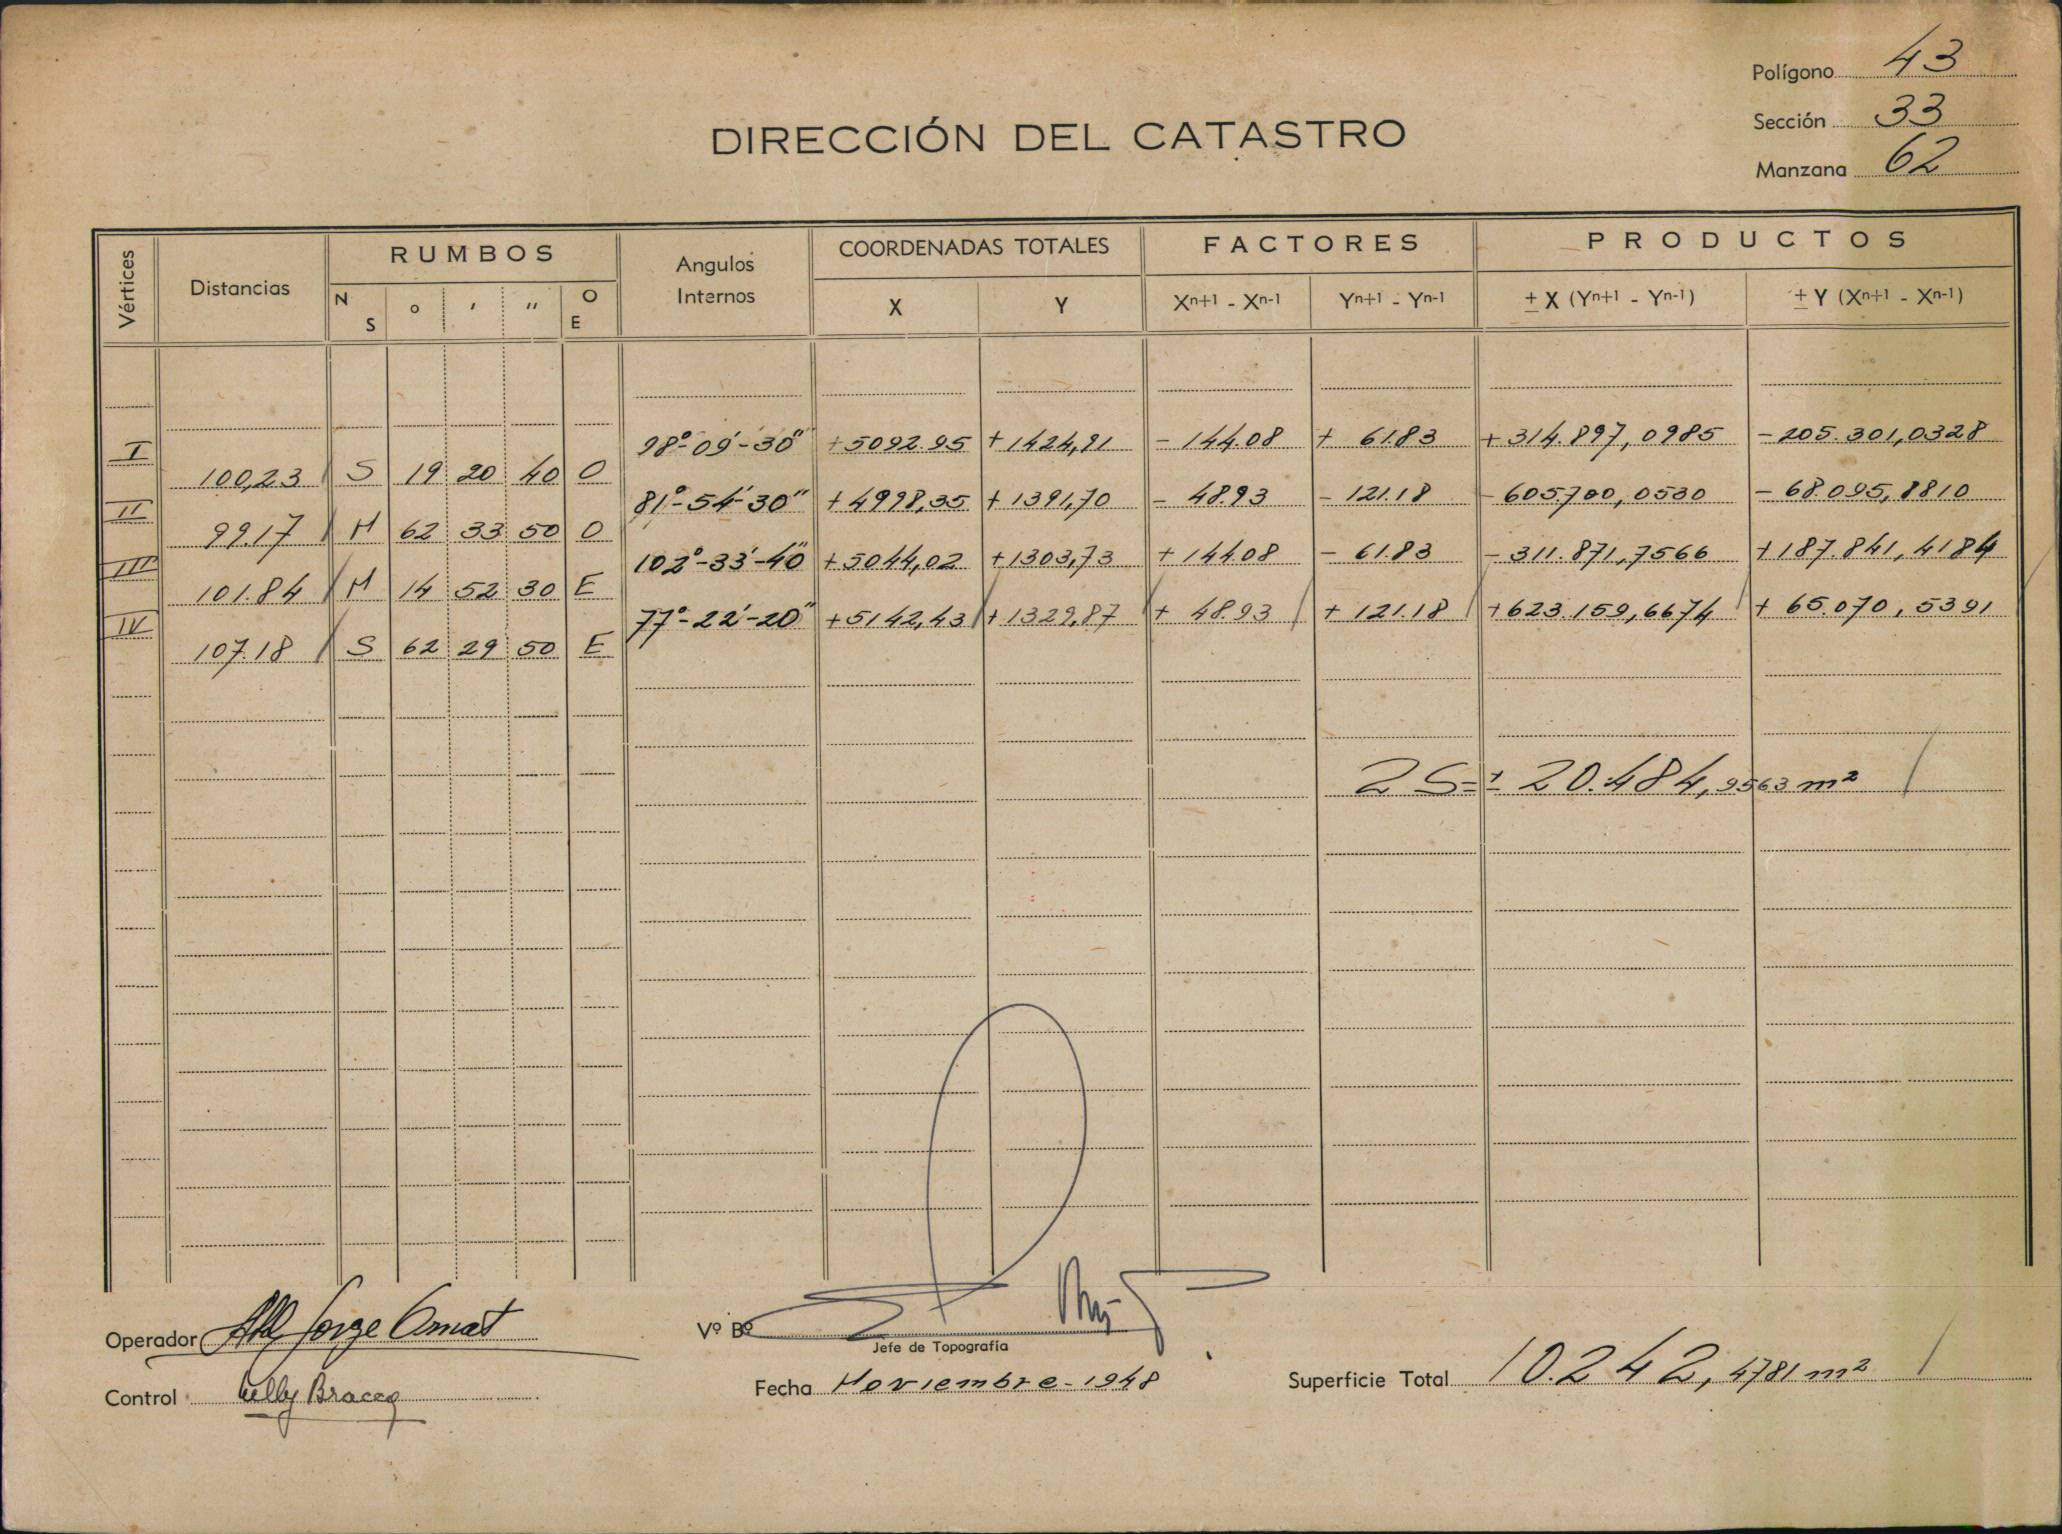 Polígono 43
Sección 33
Manzana 62
DIRECCIÓN DEL CATASTRO
Vértices Distancias RUMBOS Angulos Internos COORDENADAS TOTALES FACTORES PRODUCTOS
N S ° ' " O E X Y Xn+1 - Xn-1 Yn+1 - Yn-1 ± X (Yn+1 - Yn-1) ± Y (Xn+1 - Xn-1)
I 98°-09'-30" +5092.95 +1424,91 - 144.08 + 61.83 +314.897,0985 -205.301,0328
100,23 S 19 20 40 O
II 81°-54'-30" +4998,35 +1391,70 - 48.93 - 121.18 -605.700,0530 -68.095,8810
99.17 N 62 33 50 O
III 102°-33'-40" +5044,02 +1303,73 +144.08 - 61.83 -311.871,7566 +187.841,4184
101.84 N 14 52 30 E
IV 77°-22'-20" +5142,43 +1329,87 + 48.93 + 121.18 +623.159,6674 + 65.070,5391
107.18 S 62 29 50 E
2S=± 20.484,9563 m²
Operador Jorge Amat
Vº Bº
Jefe de Topografía
Control Bracco
Fecha Noviembre-1948
Superficie Total 10.242,4781 m²